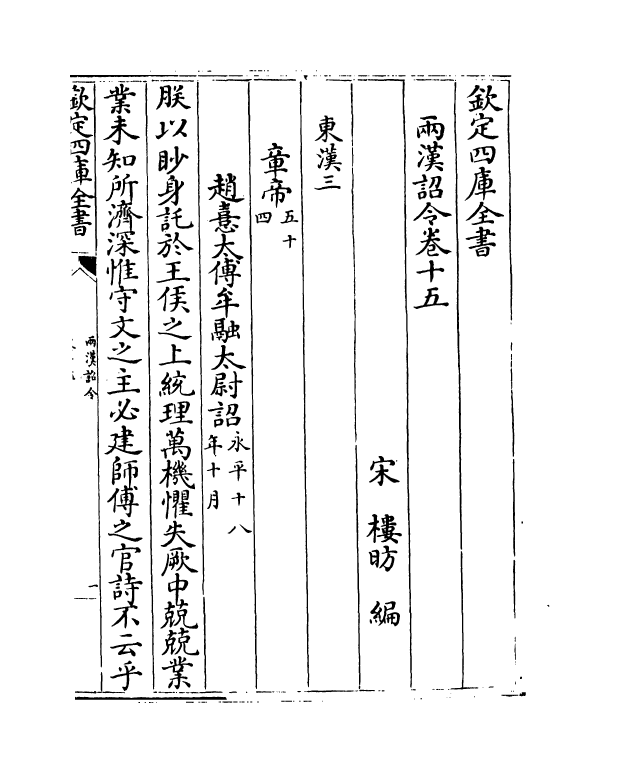 欽定四庫全書
兩漢詔令卷十五
宋 樓昉 編
東漢三
章帝五十四
趙憙太傅牟融太尉詔永平十八年十月
朕以眇身託於王侯之上統理萬機懼失厥中兢兢業
業未知所濟深惟守文之主必建師傅之官詩不云乎
欽定四庫全書
兩漢詔令
一